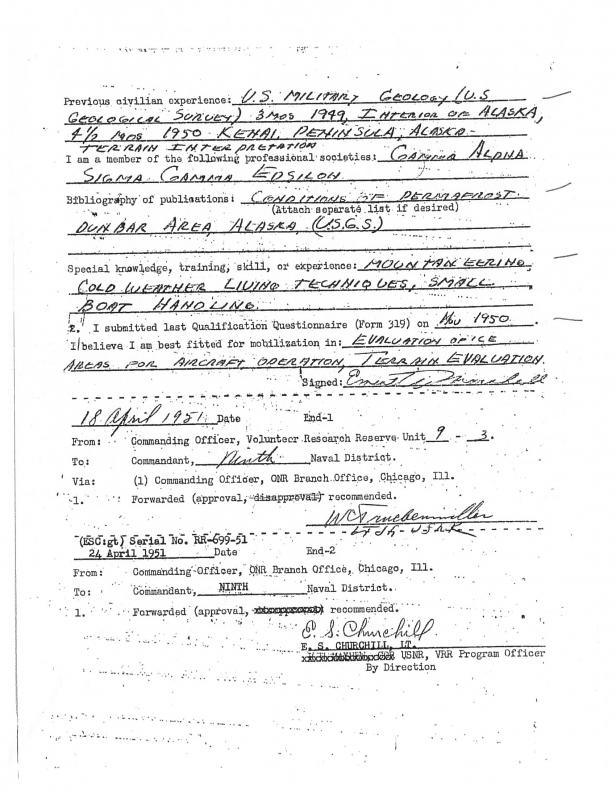 Previous civilian experience: U.S. MILITARY GEOLOGY (U.S
GEOLOGICAL SURVEY) 3 MOS 1949, INTERIOR OF ALASKA,
4½ MOS 1950 KENAI, PENINSULA, ALASKA -
TERRAIN INTERPRETATION
I am a member of the following professional societies: GAMMA ALPHA
SIGMA GAMMA EPSILON
Bibliography of publications: CONDITIONS OF PERMAFROST
(Attach separate list if desired)
DUNBAR AREA, ALASKA (U.S.G.S.)
Special knowledge, training, skill, or experience: MOUNTAINEERING,
COLD WEATHER LIVING TECHNIQUES, SMALL
BOAT HANDLING
2. I submitted last Qualification Questionnaire (Form 319) on Nov 1950.
I believe I am best fitted for mobilization in: EVALUATION OF ICE
AREAS FOR AIRCRAFT OPERATION, TERRAIN EVALUATION.
Signed:
18 April 1951 Date End-1
From: Commanding Officer, Volunteer Research Reserve Unit 9 - 3.
To: Commandant, Ninth Naval District.
Via: (1) Commanding Officer, ONR Branch Office, Chicago, Ill.
1. Forwarded (approval, disapproval) recommended.
LTJG - USNR
(ESC:gt) Serial No. RR-699-51
24 April 1951 Date End-2
From: Commanding Officer, ONR Branch Office, Chicago, Ill.
To: Commandant, NINTH Naval District.
1. Forwarded (approval, recommended.
E. S. Churchill
E. S. CHURCHILL, LT.
USNR, VRR Program Officer
By Direction